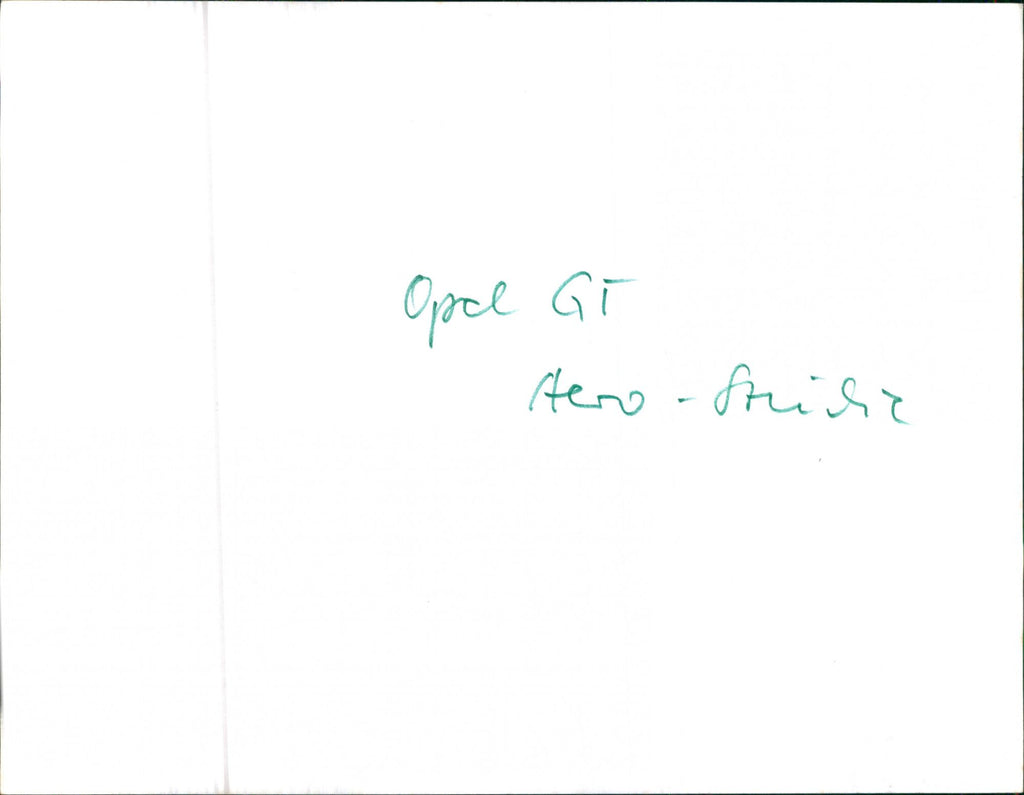 Opel GT
Aero - Studie